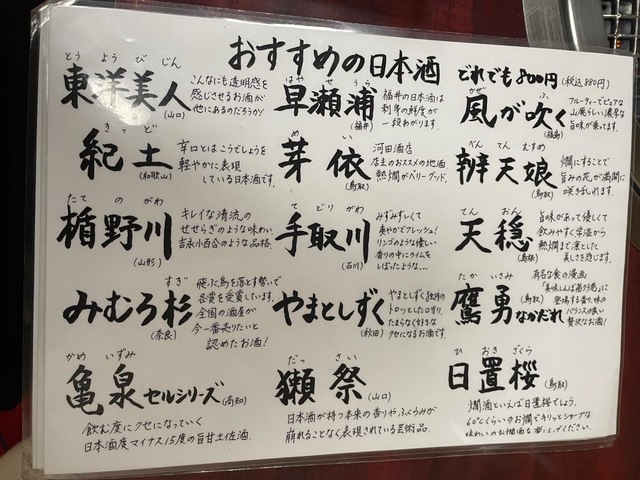 おすすめの日本酒
どれでも800円(税込880円)
とうようびじん
東洋美人
(山口)
こんなにも透明感を
感じさせるお酒が
他にあるのだろうか!
はやせうら
早瀬浦
(福井)
福井の日本酒は
刺身の鮮度が
一段わかります。
かぜ ふ
風が吹く
(福島)
フルーティーでピュアな
山廃らしい濃厚な
旨味が乗ってます。
きっど
紀土
(和歌山)
辛口とはこうでしょうを
軽やかに表現
している日本酒です。
めい
芽依
(鳥取)
河田酒店
店主のおススメの地酒
熱燗がベリーグッド。
べんてんむすめ
辨天娘
(鳥取)
燗にすることで
旨みの花が満開に
咲き乱れます。
たてのがわ
楯野川
(山形)
キレイな清流の
せせらぎのような味わい
吉永小百合のような品格。
てどりがわ
手取川
(石川)
みずみずしくて
爽やかでフレッシュ!
リンゴのような優しい
香りの中にライムを
しぼったような…
てんおん
天穏
(島根)
旨味があって優しくて
飲みやすく常温から
熱燗まで凛とした
美しさを感じます。
みむろ杉
すぎ
(奈良)
飛ぶ鳥を落とす勢いで
各賞を受賞しています。
全国の酒屋が
今一番売りたいと
認めたお酒!
やまとしずく
(秋田)
やまとしずく独特の
トロッとした口当り。
たまらなく好きな
クセになるお酒です。
たかいさみ
鷹勇なかだれ
(鳥取)
有名な食の漫画
「美味しんぼ第54巻」に
登場する香り、味の
バランスの良い
贅沢なお酒!
かめいずみ
亀泉セルシリーズ(高知)
飲む度にクセになっていく
日本酒度マイナス15度の旨甘土佐酒
だっさい
獺祭
(山口)
日本酒が持つ本来の香りやふくらみが
崩れることなく表現されている芸術品。
ひおきざくら
日置桜
(鳥取)
燗酒といえば日置桜でしょう。
60℃くらいのお燗でキリッとシャープな
味わいのお燗酒を楽しんでください。